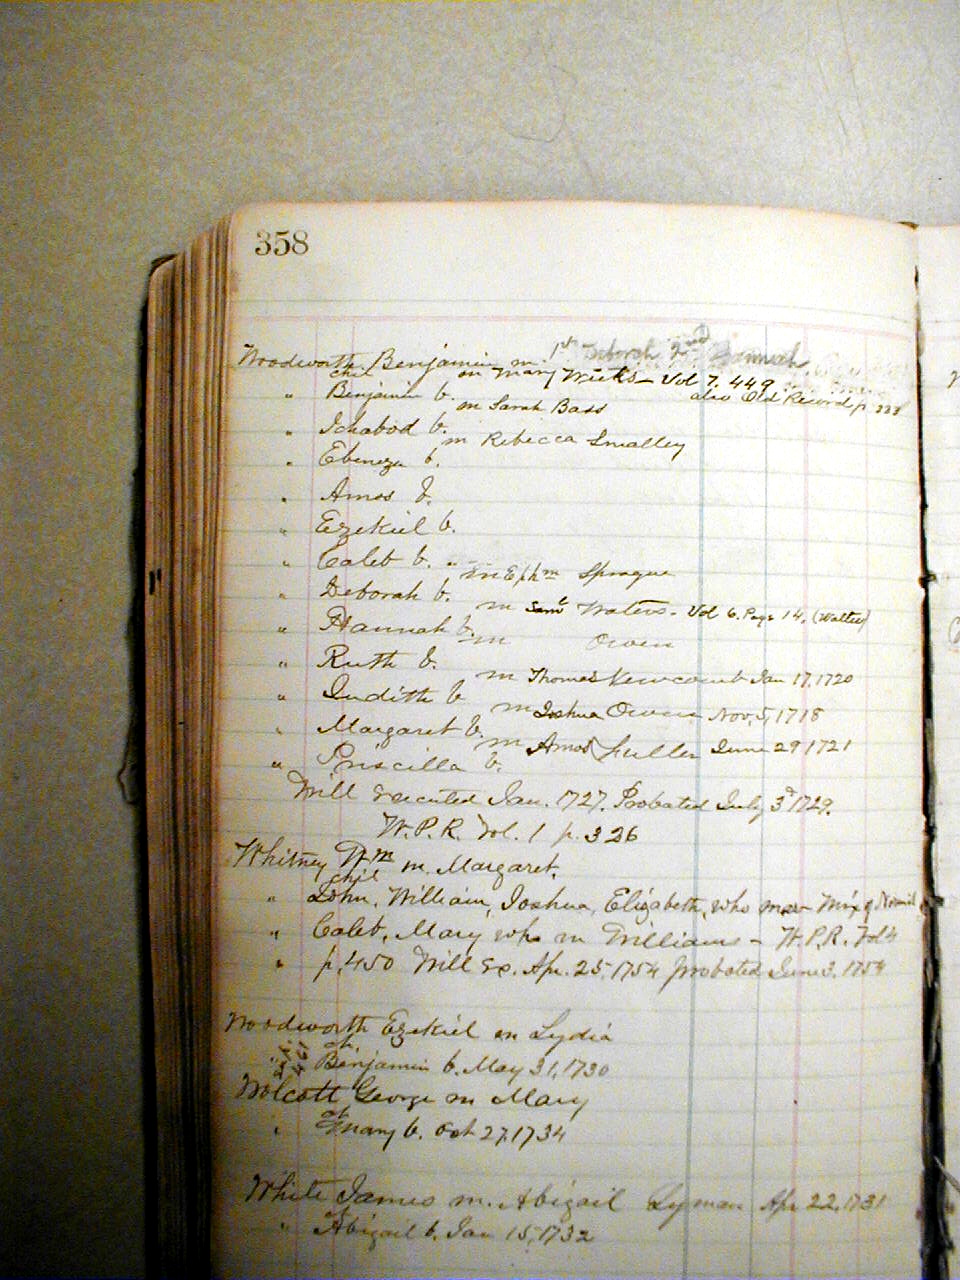 358
Woodworth Benjamin m. 1st Deborah 2nd Hannah
chil
" Benjamin b. m Mary Weeks - Vol 7. 449 also Old Record p
" Ichabod b. m Sarah Bass
" Ebenezer b. m Rebecca Smalley
" Amos b.
" Ezekiel b.
" Caleb b. "
" Deborah b. m Ephm Sprague
" Hannah b. m Saml Waters - Vol 6. Page 14. (Walter)
" Ruth b. m Owen
" Judith b m Thomas Newcomb Jan 17, 1720
" Margaret b. m Joshua Owen Nov. 5, 1718
" Priscilla b. m Amos Fuller June 29 1721
Will executed Jan. 1727. Probated July 3d 1729.
W.P.R. Vol. 1 p. 326
Whitney Wm m. Margaret.
chil
" John, William, Joshua, Elizabeth, who m Mix of
" Caleb, Mary who m Williams - W.P.R. Vol 4
" p. 450 Will Ex. Apr. 25, 1754 probated June 3. 1754
Woodworth Ezekiel m Lydia
ch.
Benjamin b. May 31, 1730
Wolcott George m Mary
ch
" Mary b. Oct 27, 1734
White James m. Abigail Lyman Apr 22, 1731
ch
" Abigail b. Jan 15, 1732